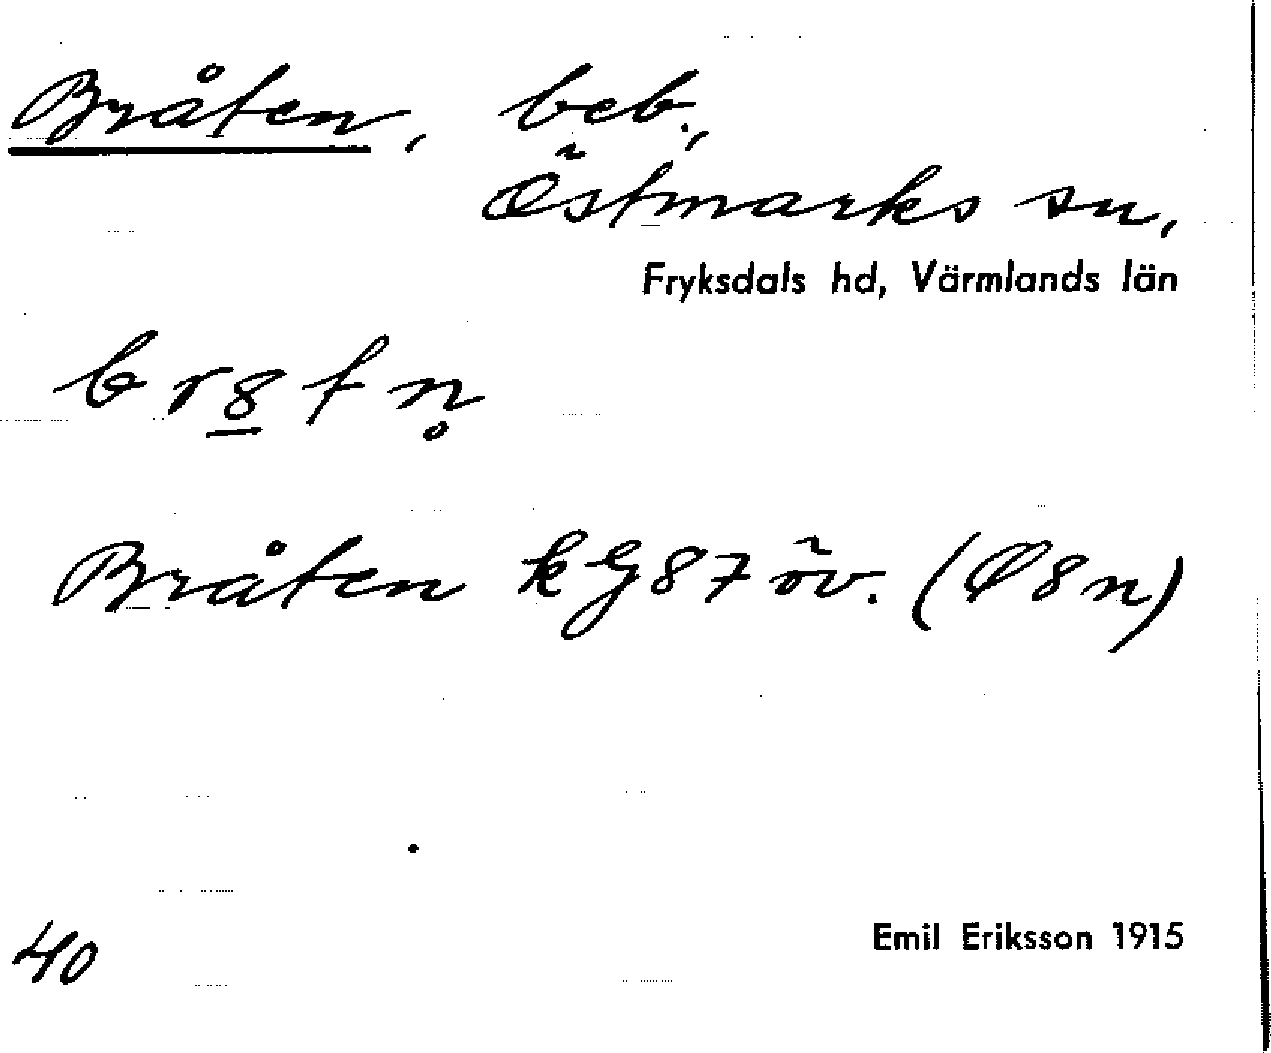 Bråten, beb.,
Östmarks sn,
Fryksdals hd, Värmlands län
br8tn̥
Bråten kg 87 öv. (Ø8n)
40
Emil Eriksson 1915